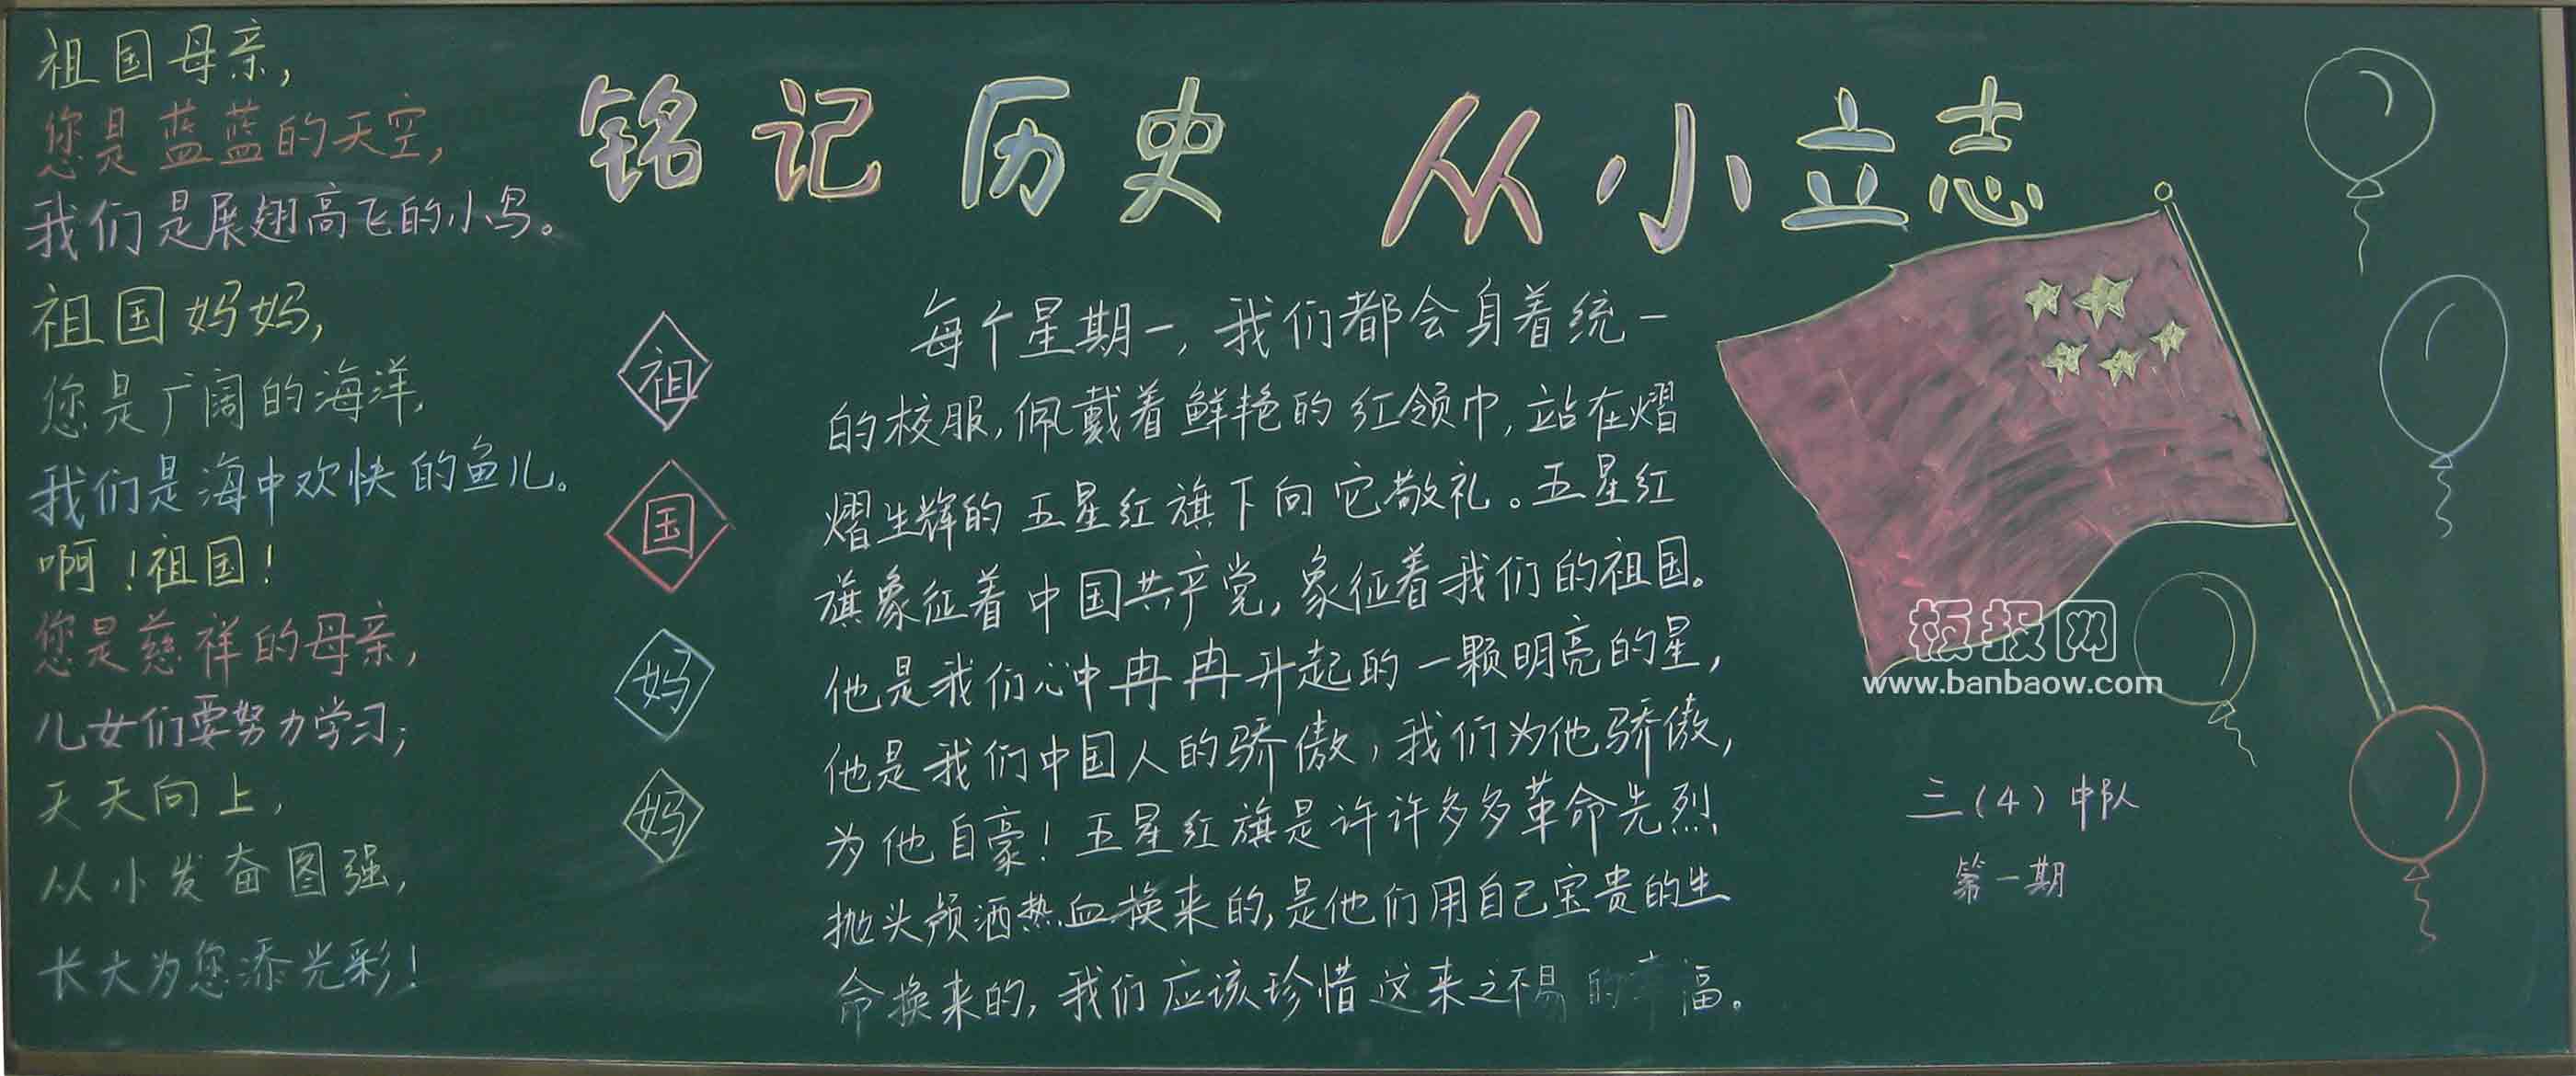 铭记历史 从小立志
祖国母亲，
您是蓝蓝的天空，
我们是展翅高飞的小鸟。
祖国妈妈，
您是广阔的海洋，
我们是海中欢快的鱼儿。
啊！祖国！
您是慈祥的母亲，
儿女们要努力学习；
天天向上，
从小发奋图强，
长大为您添光彩！
祖
国
妈
妈
每个星期一，我们都会身着统一
的校服，佩戴着鲜艳的红领巾，站在熠
熠生辉的五星红旗下向它敬礼。五星红
旗象征着中国共产党，象征着我们的祖国。
他是我们心中冉冉升起的一颗明亮的星，
他是我们中国人的骄傲，我们为他骄傲，
为他自豪！五星红旗是许许多多革命先烈
抛头颅洒热血换来的，是他们用自己宝贵的生
命换来的，我们应该珍惜这来之不易的幸福。
板报网
www.banbaow.com
三（4）中队
第一期